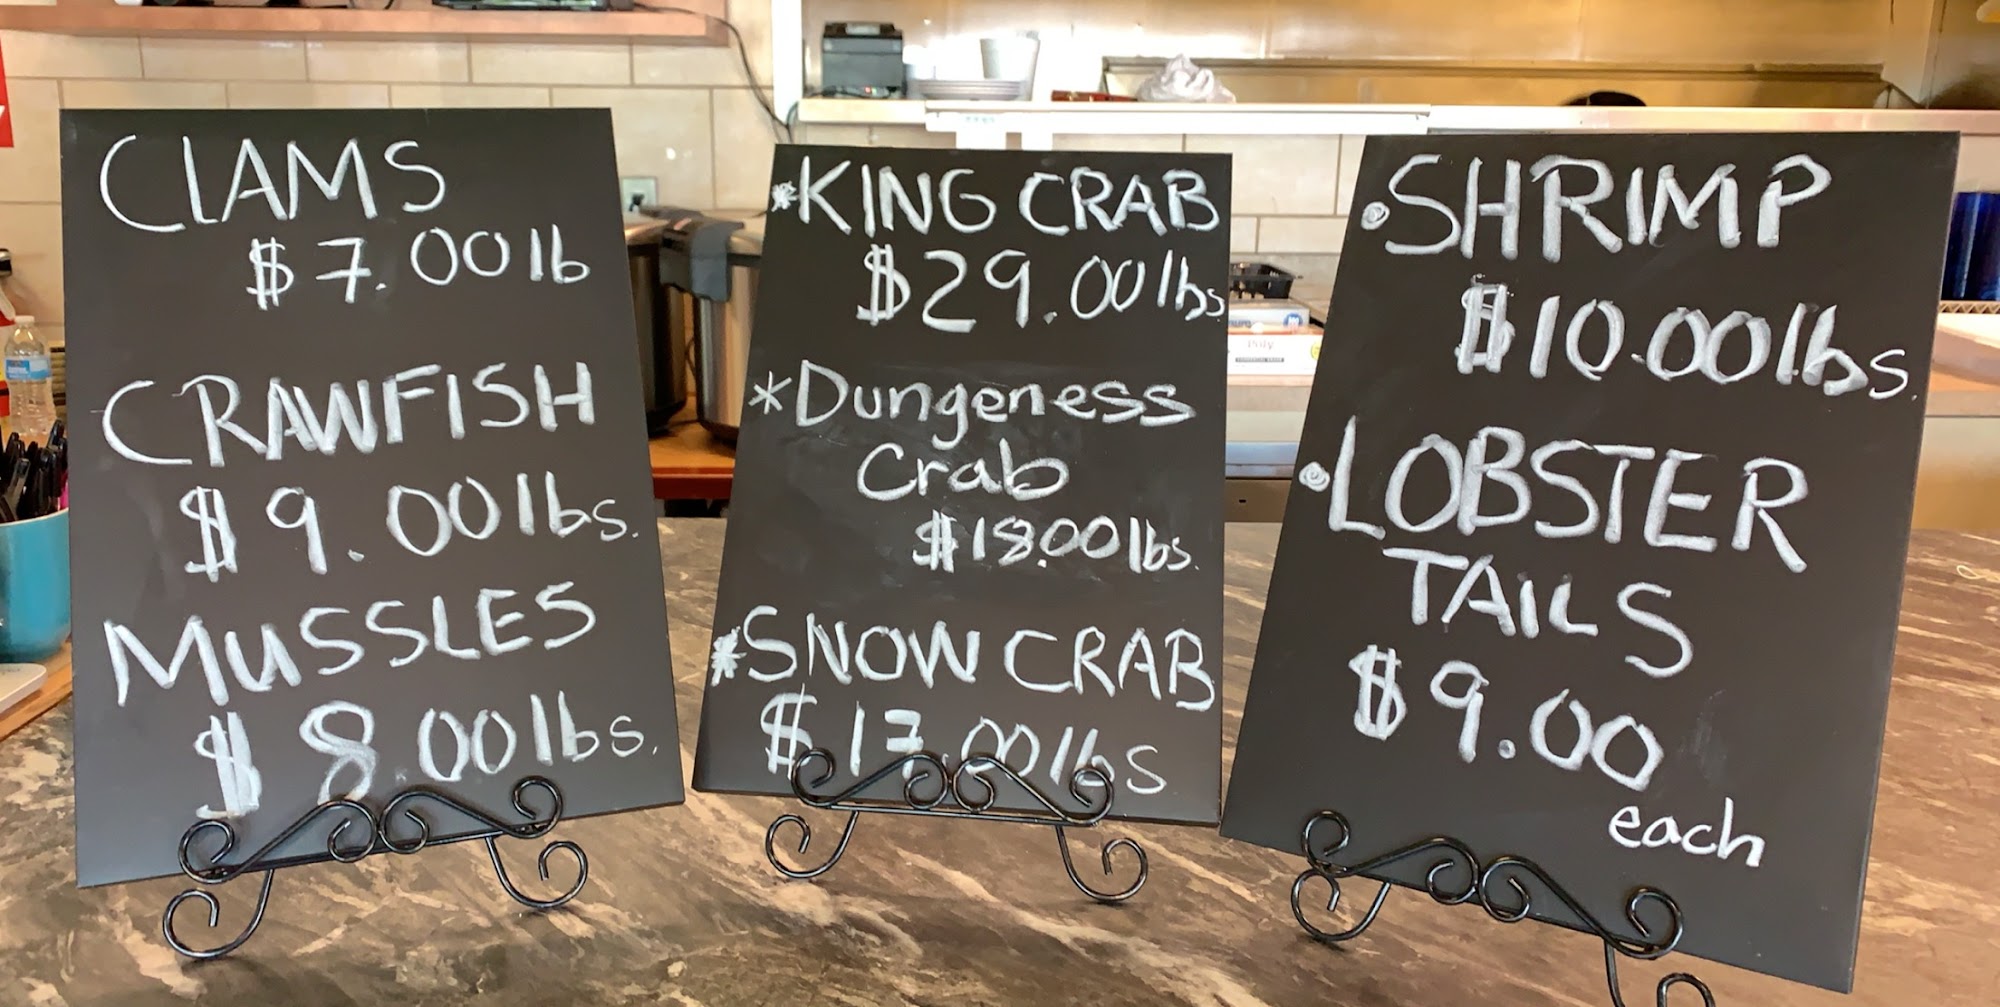 CLAMS
$7.00 lb
CRAWFISH
$9.00 lbs.
MUSSLES
$8.00 lbs.
*KING CRAB
$29.00 lbs
*Dungeness
Crab
$18.00 lbs.
*SNOW CRAB
$17.00 lbs
•SHRIMP
$10.00 lbs.
•LOBSTER
TAILS
$9.00
each
Poly